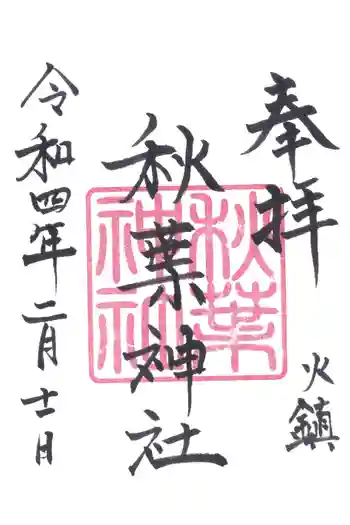 奉拝
火鎮
秋葉神社
秋葉神社
令和四年二月十一日